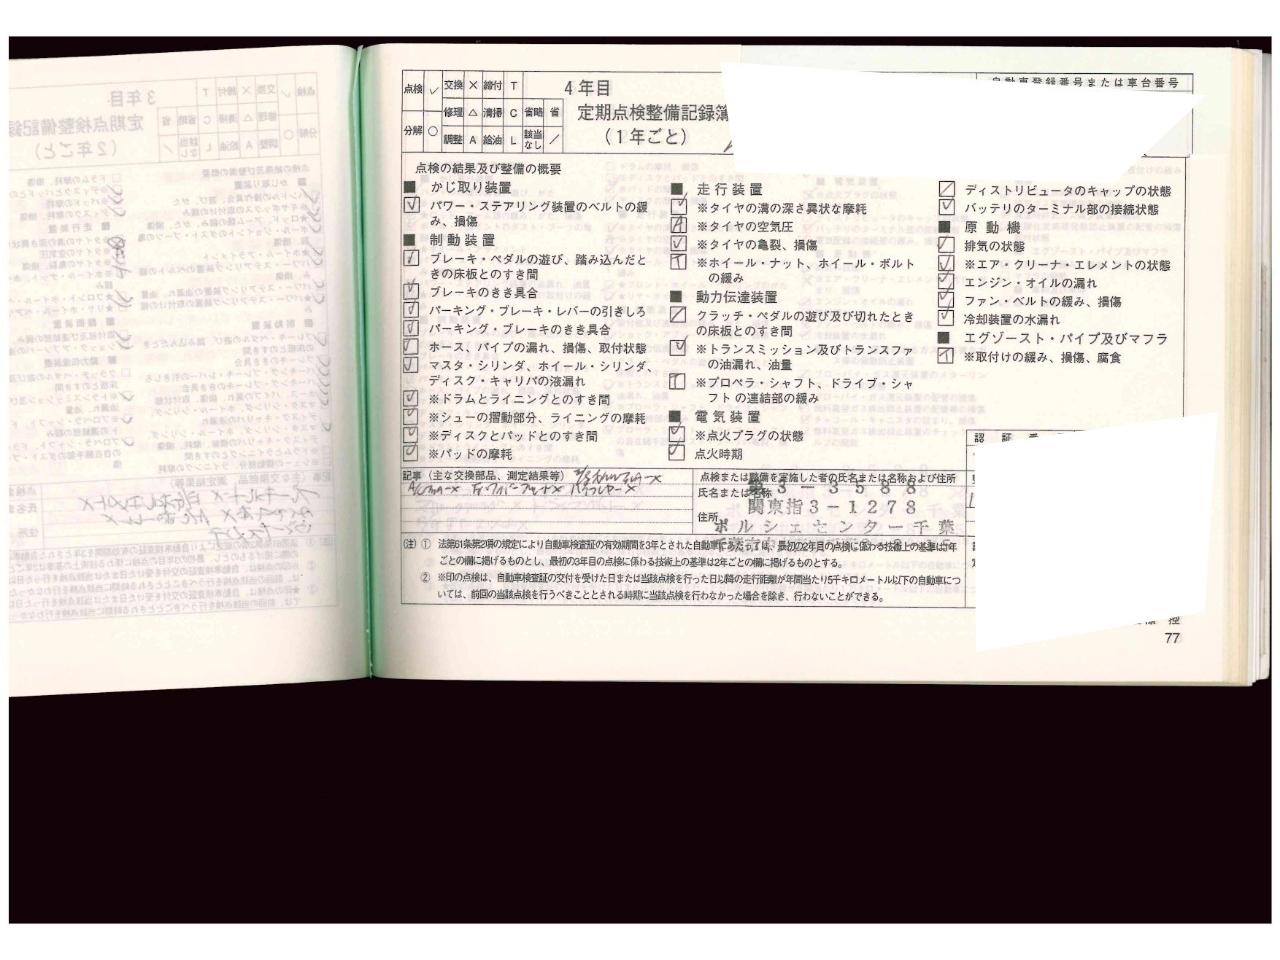 点検 ✓ 交換 × 締付 T
修理 △ 清掃 C 省略 省
分解 ○ 調整 A 給油 L 該当なし ／
4年目
定期点検整備記録簿
(1年ごと)
自動車登録番号または車台番号
点検の結果及び整備の概要
■ かじ取り装置
パワー・ステアリング装置のベルトの緩
み、損傷
■ 制動装置
ブレーキ・ペダルの遊び、踏み込んだと
きの床板とのすき間
ブレーキのきき具合
パーキング・ブレーキ・レバーの引きしろ
パーキング・ブレーキのきき具合
ホース、パイプの漏れ、損傷、取付状態
マスタ・シリンダ、ホイール・シリンダ、
ディスク・キャリパの液漏れ
※ドラムとライニングとのすき間
※シューの摺動部分、ライニングの摩耗
※ディスクとパッドとのすき間
※パッドの摩耗
■ 走行装置
※タイヤの溝の深さ異状な摩耗
※タイヤの空気圧
※タイヤの亀裂、損傷
※ホイール・ナット、ホイール・ボルト
の緩み
■ 動力伝達装置
クラッチ・ペダルの遊び及び切れたとき
の床板とのすき間
※トランスミッション及びトランスファ
の油漏れ、油量
※プロペラ・シャフト、ドライブ・シャ
フトの連結部の緩み
■ 電気装置
※点火プラグの状態
点火時期
ディストリビュータのキャップの状態
バッテリのターミナル部の接続状態
■ 原動機
排気の状態
※エア・クリーナ・エレメントの状態
エンジン・オイルの漏れ
ファン・ベルトの緩み、損傷
冷却装置の水漏れ
■ エグゾースト・パイプ及びマフラ
※取付けの緩み、損傷、腐食
記事（主な交換部品、測定結果等）
点検または整備を実施した者の氏名または名称および住所
氏名または名称
住所
第3-3588
関東指3-1278
ポルシェセンター千葉
(注) ① 法第61条第2項の規定により自動車検査証の有効期間を3年とされた自動車にあたっては、最初の2年目の点検に係わる技術上の基準は1年
ごとの欄に掲げるものとし、最初の3年目の点検に係わる技術上の基準は2年ごとの欄に掲げるものとする。
② ※印の点検は、自動車検査証の交付を受けた日または当該点検を行った日以降の走行距離が年間当たり5千キロメートル以下の自動車につ
いては、前回の当該点検を行うべきこととされる時期に当該点検を行わなかった場合を除き、行わないことができる。
77